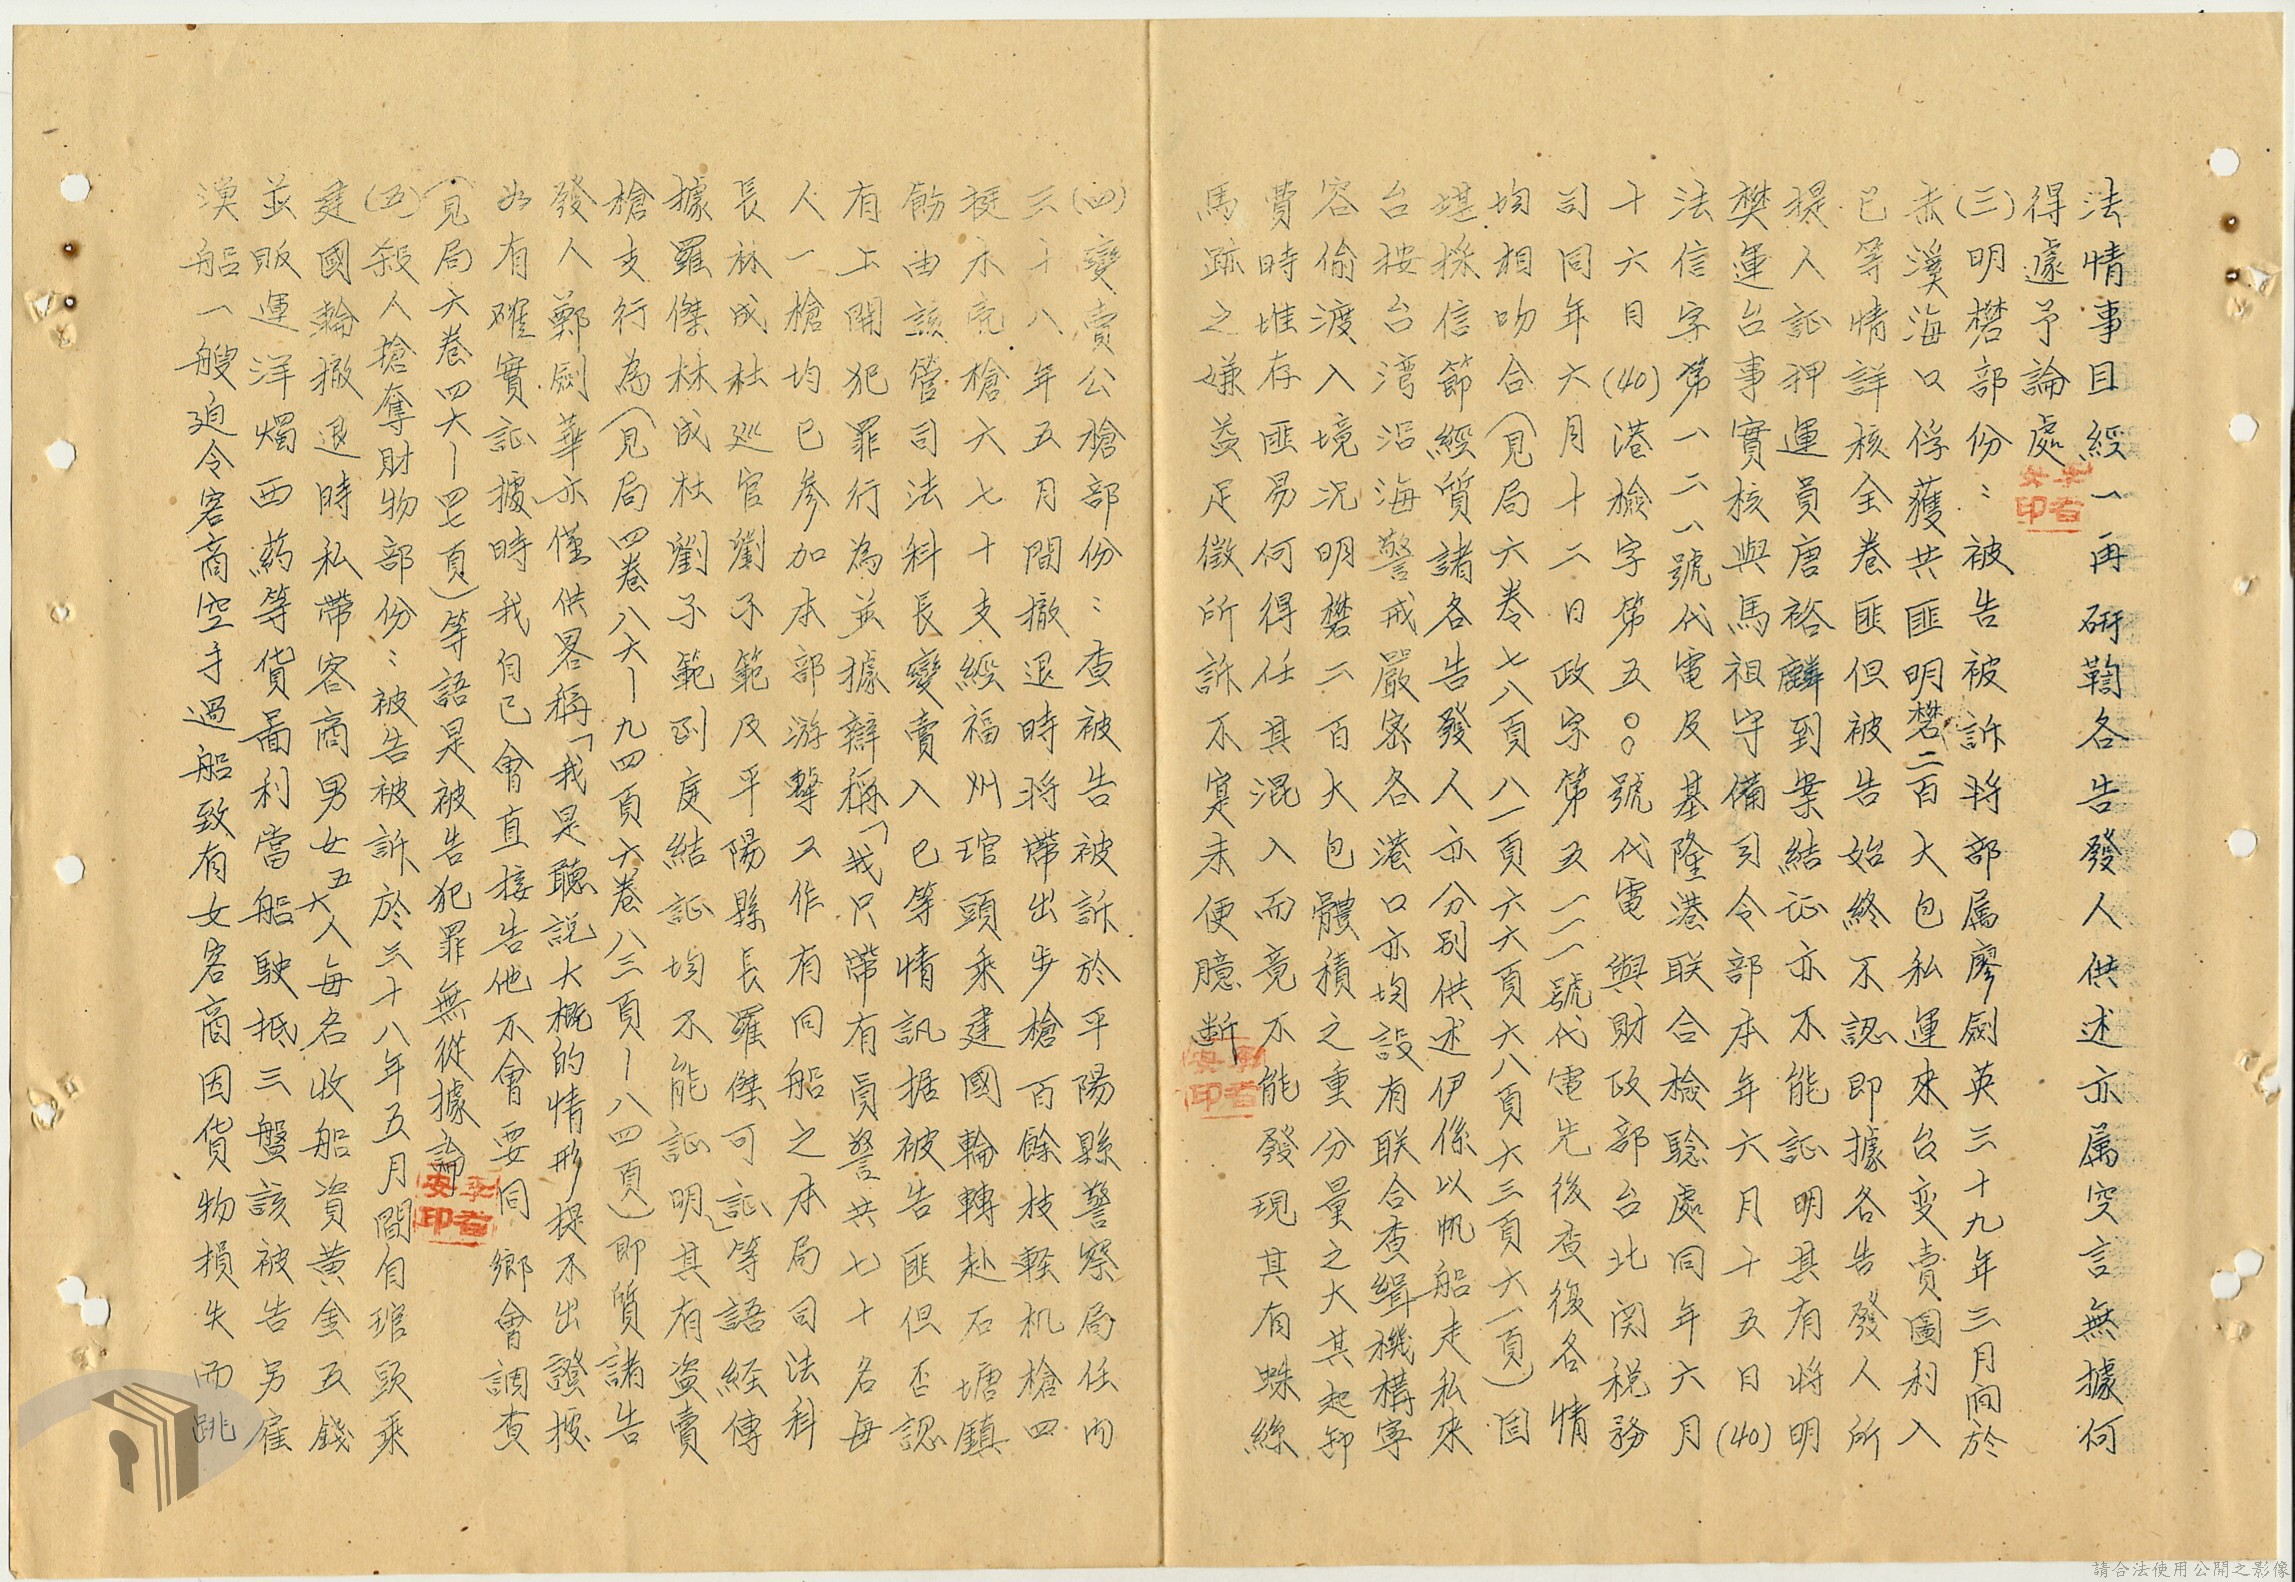 法情事且經一再研鞫各告發人供述亦属空言無據何
得遽予論處
(三)明礬部份：被告被訴将部属廖劍英三十九年三月间於
赤溪海口俘獲共匪明礬二百大包私運來台变賣圖利入
已等情詳核全卷匪但被告始終不認即據各告發人所
提人証押運員唐裕麟到案結証亦不能証明其有将明
樊運台事實核與馬祖守備司令部本年六月十五日(40)
法信字第一二八號代電及基隆港联合檢驗處同年六月
十六日(40)港檢字第五〇〇號代電與財政部台北関税務
司同年六月十二日政字第五一一一號代電先後查復各情
均相吻合(見局六卷七八頁八一頁六六頁六八頁六三頁六一頁)固
堪採信節經質諸各告發人亦分别供述伊係以帆船走私來
台按台湾沿海警戒嚴密各港口亦均設有联合查緝機構寧
容偷渡入境况明礬二百大包體積之重分量之大其起卸
費時堆存匪易何得任其混入而竟不能發現其有蛛絲
馬跡之嫌益足徵所訴不寔未便臆断
(四)變賣公槍部份：查被告被訴於平陽縣警察局任内
三十八年五月間撤退時将帶出步槍百餘枝輕机槍四
挺木壳槍六七十支經福州琯頭乘建國輪轉赴石塘鎮
飭由該管司法科長變賣入已等情訊据被告匪但否認
有上開犯罪行為並據辯稱「我只帶有員警共七十名每
人一槍均已參加本部游擊工作有同船之本局司法科
長林成杜巡官劉不範及平陽縣長羅傑可証」等語經傳
據羅傑林成杜劉不範到庭結証均不能証明其有盗賣
槍支行為(見局四卷八六—九四頁六卷八三頁—八四頁)即質諸告
發人鄭劍華亦僅供畧稱「我是聽説大概的情形提不出證據
如有確實証據時我自已會直接告他不會要同鄉會調查
(見局六卷四六—四七頁)等語是被告犯罪無從據論
(五)殺人搶奪財物部份：被告被訴於三十八年五月間自琯頭乘
建國輪撤退時私帶客商男女五六人每名收船資黄金五錢
並販運洋燭西葯等貨圖利當船駛抵三盤該被告另雇
漁船一艘迫令客商空手過船致有女客商因貨物損失而跳
李右安印
李右安印
李右安印
請合法使用公開之影像